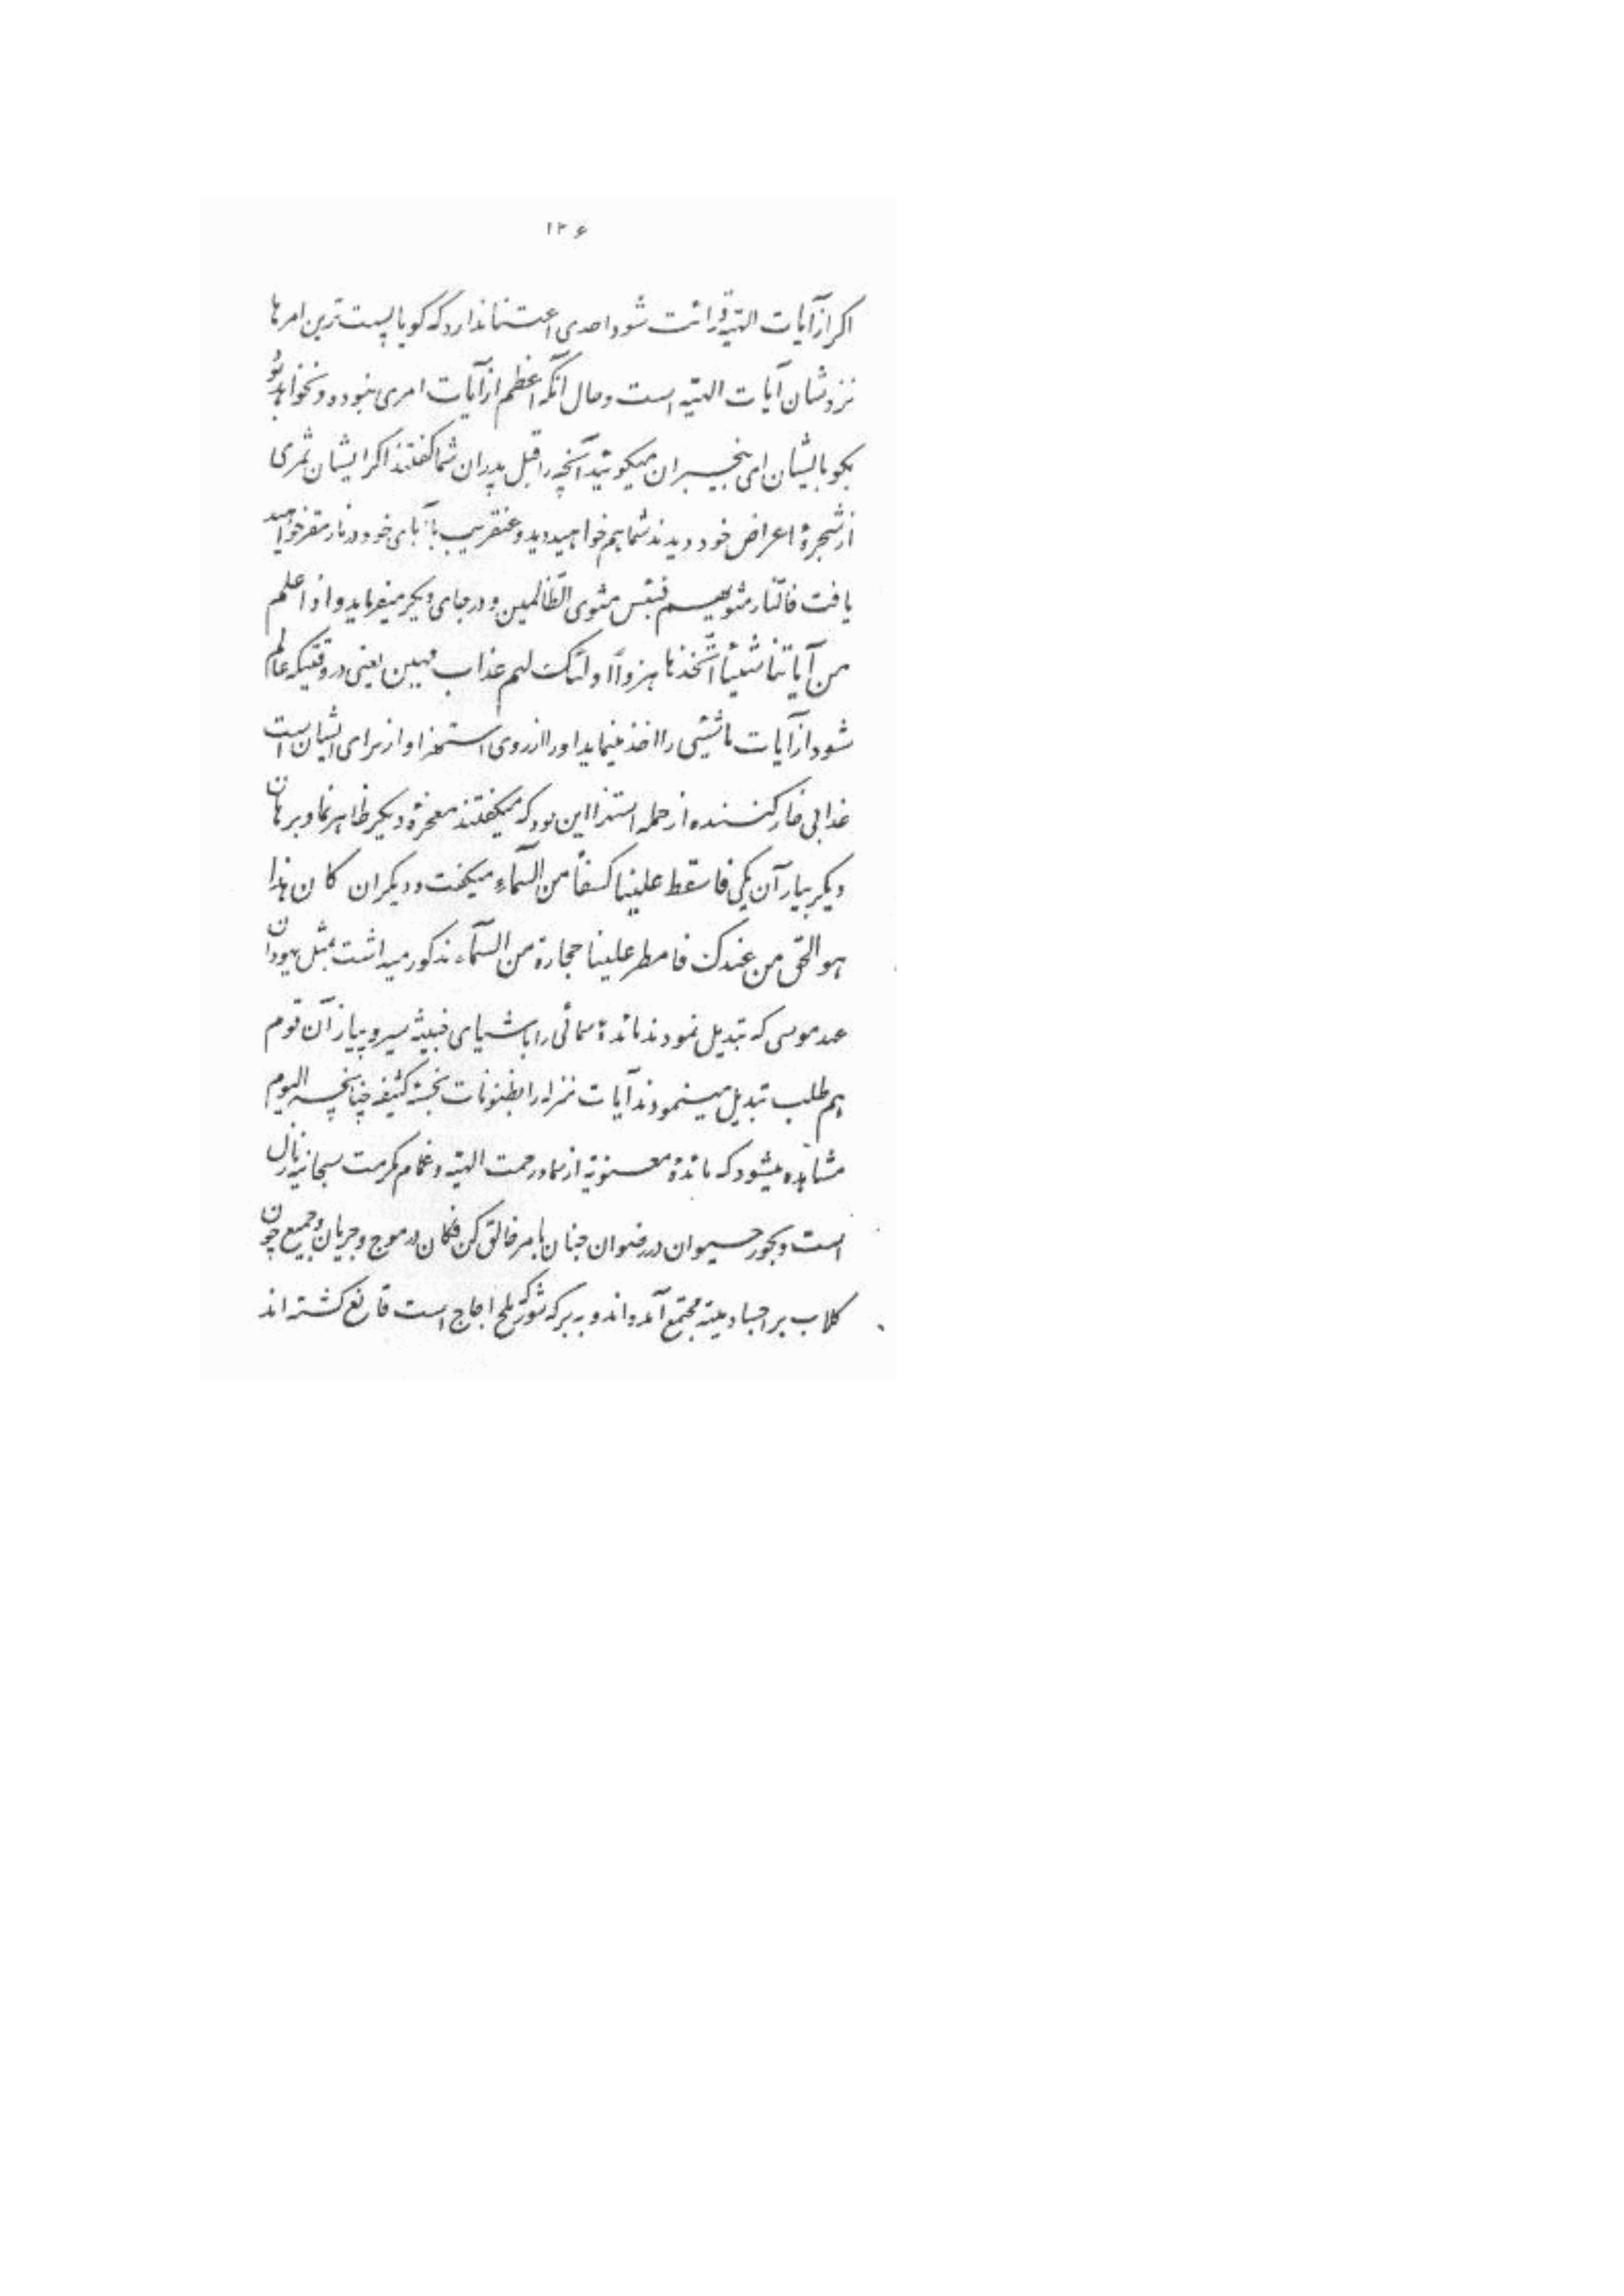 ۱۲۶
اکر از آیات الهیّه قرائت شود احدی اعتنا ندارد که کویا پست ترین امرها
نزدشان آیات الهیّه است و حال آنکه اعظم از آیات امری نبوده و نخواهد بود
بکو بایشان ای بیخبران میکوئید آنچه را قبل پدران شما کفتند اکر ایشان ثمری
از شجرهٔ اعراض خود دیدند شما هم خواهید دید و عنقریب با آبای خود در نار مقرّ خواهید
یافت فالنّار مثویهم فبئس مثوی الظّالمین و در جای دیکر میفرماید و اذا علم
من آیاتنا شیئاً اتّخذها هزواً اولئک لهم عذاب مهین یعنی در وقتیکه عالم
شود از آیات ما شیئی را اخذ مینماید او را از روی استهزاء و از برای ایشان است
عذابی خار کننده از جمله استهزا این بود که میکفتند معجزهٔ دیکر ظاهر نما و برهان
دیکر بیار آن یکی فاسقط علینا کسفاً من السّمآء میکفت و دیکران کان هذا
هو الحقّ من عندک فامطر علینا حجارة من السّمآء مذکور میداشت بمثل یهودان
عهد موسی که تبدیل نمودند مائدهٔ سمائی را باشیای خبیثه سیر و پیاز آن قوم
هم طلب تبدیل مینمودند آیات منزله را بظنونات نجسهٔ کثیفه چنانچه الیوم
مشاهده میشود که مائدهٔ معنویّه از سماء رحمت الهیّه و غمام مکرمت سبحانیّه نازل
است و بحور حیوان در رضوان جنان بامر خالق کن فکان در موج و جریان و جمیع چون
کلاب بر اجساد میّته مجتمع آمده‌اند و به برکهٔ شور که ملح اجاج است قانع کشته اند